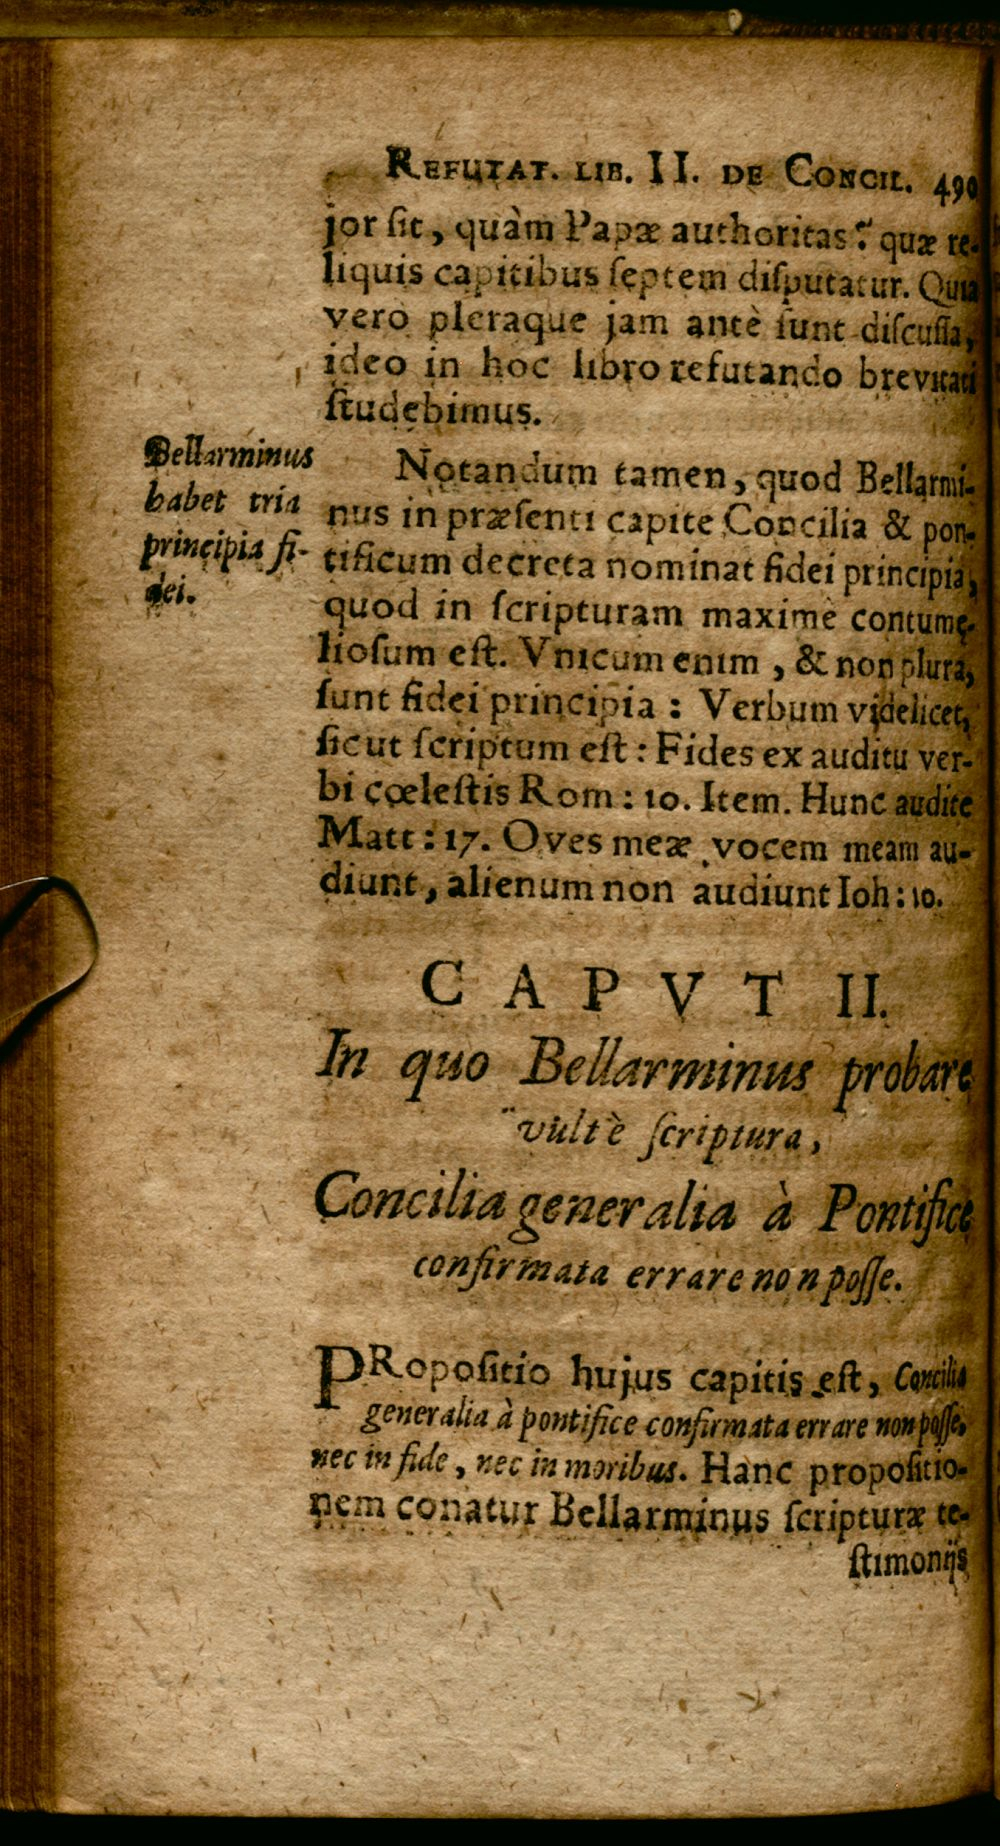 REFUTAT. LIB. II. DE CONCIL. 490
jor sit, quàm Papæ authoritas? quæ re-
liquis capitibus septem disputatur. Quia
verò pleraque jam antè sunt discussa,
ideo in hoc libro refutando brevitati
studebimus.
Bellarminus
habet tria
principia fi-
dei.
Notandum tamen, quod Bellarmi-
nus in præsenti capite Concilia & pon-
tificum decreta nominat fidei principia,
quod in scripturam maximè contume-
liosum est. Vnicum enim, & non plura,
sunt fidei principia: Verbum videlicet,
sicut scriptum est: Fides ex auditu ver-
bi cœlestis Rom: 10. Item. Hunc audite
Matt: 17. Oves meæ vocem meam au-
diunt, alienum non audiunt Ioh: 10.
CAPVT II.
In quo Bellarminus probare
vult è scriptura,
Concilia generalia à Pontifice
confirmata errare non posse.
PRopositio hujus capitis est, Concilia
generalia à pontifice confirmata errare non posse,
nec in fide, nec in moribus. Hanc propositio-
nem conatur Bellarminus scripturæ te-
stimoniis